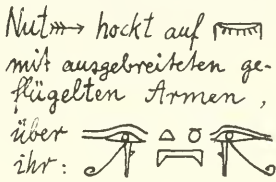 Nut hockt auf
mit ausgebreiteten ge-
flügelten Armen,
über
ihr: